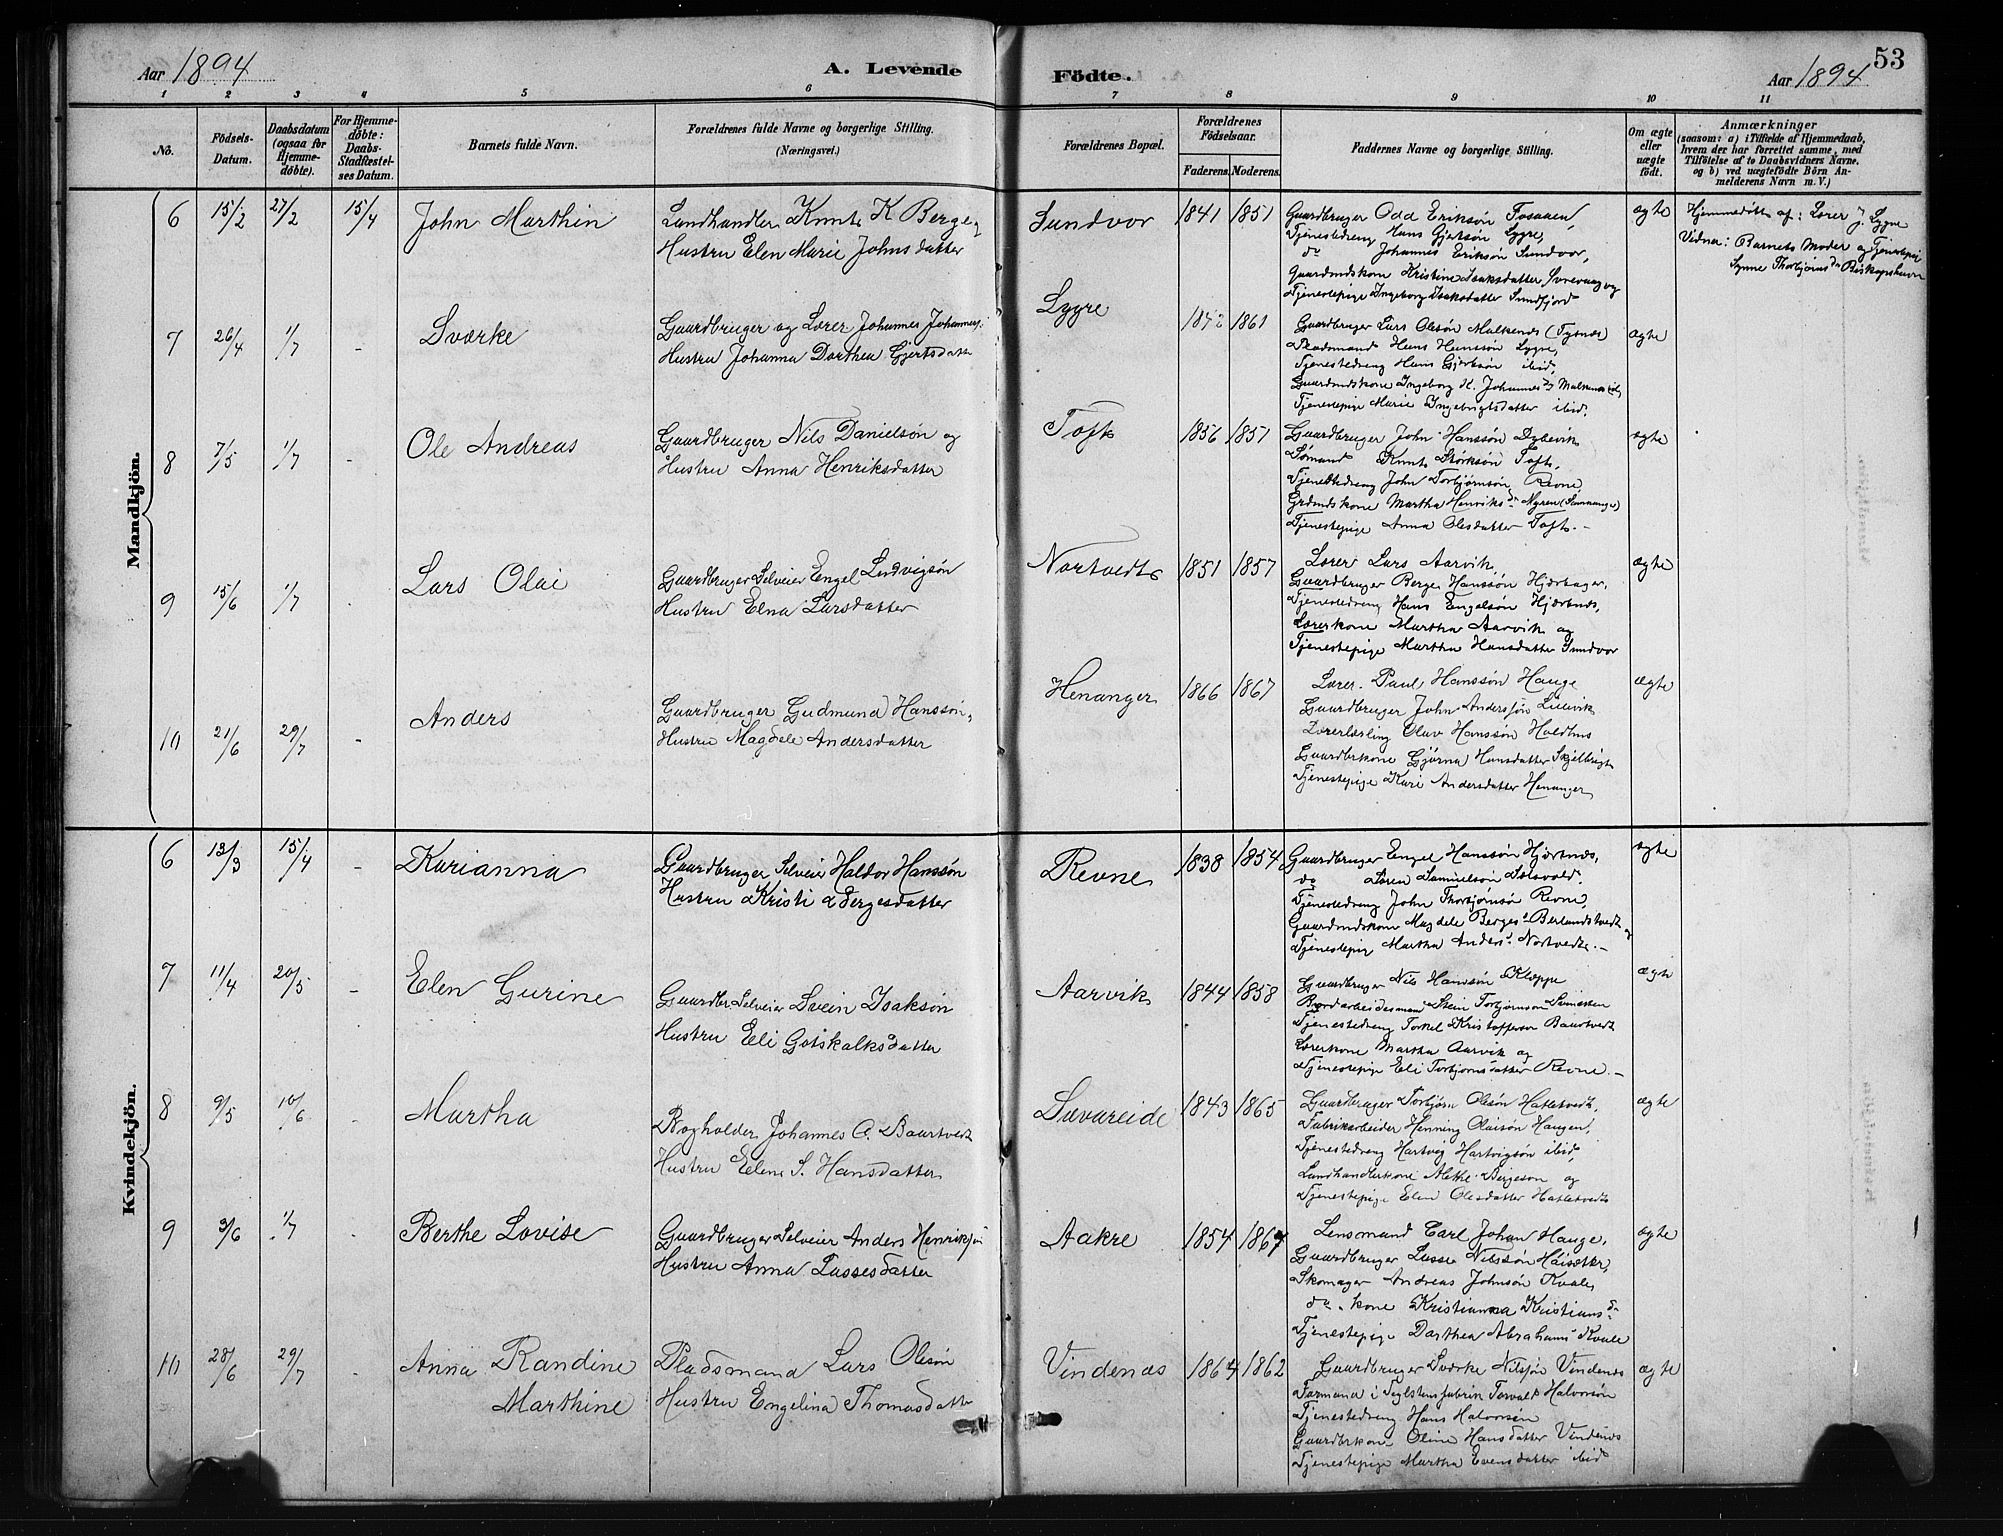 Aar 1894 A. Levende Födte. Aar 1894 53
1 2 3 4 5 6 7 8 9 10 11
No. Födsels-Datum. Daabsdatum (ogsaa for Hjemmedöbte). For Hjemmedöbte: Daabs-Stadfæstelses Datum. Barnets fulde Navn. Forældrenes fulde Navne og borgerlige Stilling. (Næringsvei.) Forældrenes Bopæl. Forældrenes Födselsaar. Faderens. Moderens. Faddernes Navne og borgerlige Stilling. Om ægte eller uægte födt. Anmærkninger (saasom: a) i Tilfælde af Hjemmedaab, hvem der har forrettet samme, med Tilföielse af to Daabsvidners Navne, og b) ved uægtefödte Börn Anmelderens Navn m. V.)
Mandkjön.
6 15/2 27/2 15/4 John Marthin Landhandler Knut K Berge og
Hustru Elen Marie Johnsdatter
Sundvor 1841 1851
Gaardbruger Odd Eriksön Fosaaen,
Tjenestedreng Hans Gjertsön Lygre,
do Johannes Eriksön Sundvor,
Gaardmdskone Kristine Isaksdatter og
Tjenestepige Ingeborg Isaksdatter Sundfjord
ægte
Hjemmedöbt af: Lærer J. Lygre
Vidner: Barnets Moder og Tjenestepige
Synne Thorbjörnsdr Biskopshavn
7 26/4 1/7 - Sværke
Gaardbruger og Lærer Johannes Johanness.
Hustru Johanna Dorthea Gjertsdatter
Lygre 1861
Gaardbruger Lars Olesön Malkenes (Tysnæs)
Pladsmand Hans Hanssön Lygre,
Tjenestedreng Hans Gjertsön ibid,
Gaardmdskone Ingeborg H. Johannesdr Malkenes
Tjenestepige Marie Ingebrigtsdatter ibid.
ægte
8 7/5 1/7 - Ole Andreas
Gaardbruger Nils Danielsön og
Hustru Anna Henriksdatter
Toft 1856 1851
Gaardbruger John Hanssön Dybevik
Sömand Knut Störksön Toft,
Tjenestedreng John Torbjörnsön Revne,
Grdmdskone Martha Henriksdr Myren
Tjenestepige Anna Olesdatter Toft. -
ægte
9 15/6 1/7 - Lars Olai
Gaardbruger Selveier Engel Ludvigsön
Hustru Elna Larsdatter
Nortvedt 1851 1857
Lærer Lars Aarvik,
Gaardbruger Berge Hanssön Hjærtager,
Tjenestedreng Hans Engelsön Hjærtnes,
Lærerkone Martha Aarvik og
Tjenestepige Martha Hansdatter Sundvor
ægte
10 21/6 29/7 - Anders
Gaardbruger Gudmund Hanssön,
Hustru Magdele Andersdatter
Henanger 1866 1867
Lærer Paul Hanssön Hauge
Gaardbruger John Anderssön
Lærerlærling Olav Hanssön
Gaardbrkone Gjörna Hansdatter
Tjenestepige Kari Andersdatter Henanger
ægte
Kvindekjön.
6 13/3 15/4 - Karianna
Gaardbruger Selveier Haldor Hanssön
Hustru Kristi Bergesdatter
Revne 1838 1854
Gaardbruger Engel Hanssön Hjærtnæs,
do Sören Samuelsön
Tjenestedreng John Thorbjörnsö Revne,
Gaardmdskone Magdele Berges. Berlandstvedt og
Tjenestepig Martha Anders. Nortvedt. -
ægte
7 11/4 20/5 - Elen Gurine
Gaardbr. Selveier Svein Isaksön
Hustru Eli Gotskalksdatter
Aarvik 1844 1858
Gaardbruger Nils Hanssön Kleppe
Stein Torbjörnsön
Tjenestedreng Torkel Kristoffersen Baurtvedt
Lærerkone Martha Aarvik og
Tjenestepige Eli Torbjörnsdatter Revne. -
ægte
8 9/5 10/6 - Martha
Bogholder Johannes O. Baurtvedt
Hustru Eline S. Hansdatter
Sævareide 1843 1865
Gaardbruger Torbjörn Olesön Hatletvedt,
Fabrikarbeider Henning Olaisön Haugen,
Tjenestedreng Hartvig Hartvigsön ibid,
Landhandlerkone Mette Bergeson og
Tjenestepige Elen Olesdatter Hatletvedt
ægte
9 3/6 1/7 - Berthe Lovise
Gaardbruger Selveier Anders Henriksön
Hustru Anna Lassesdatter
Aakre 1854 1867
Lensmand Carl Johan Hauge,
Gaardbruger Lasse Nilssön Haisæter,
Skomager Andreas Johnsön Kvale,
do. kone Kristianna Kristiansdr
Tjenestepige Darthea Abrahams. Kvale
ægte
10 28/6 29/7 - Anna Randine
Marthine
Pladsmand Lars Olesön
Hustru Engelina Thomasdatter
Vindenæs 1864 1862
Gaardbruger Sværke Nilsön Vindenæs
Formand i Teglstensfabrik Torvald Halvorsön
Tjenestedreng Hans Halvorsön
Gaardbrkone Oline Hansdatter Vindenæs
Tjenestepige Martha Evensdatter ibid
ægte